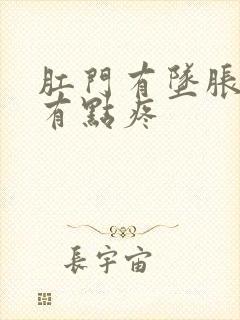 肛門有墜脹
有點疼
長宇宙